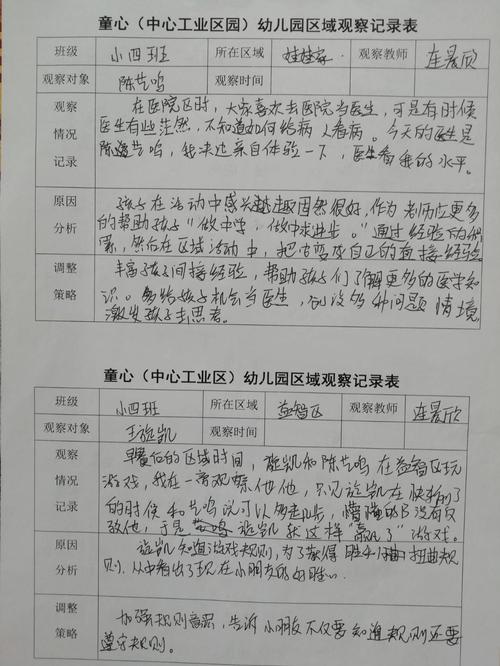 童心（中心工业区园）幼儿园区域观察记录表
班级 小四班 所在区域 娃娃家 观察教师 连晨欣
观察对象 陈艺鸣 观察时间
观察 在医院区时，大家喜欢去医院当医生，可是有时候
情况 医生有些茫然，不知道如何给病人看病。今天的医生是
记录 陈艺鸣，我决定亲自体验一下，医生看病的水平。
原因 孩子在活动中感兴趣固然很好，作为老师应更多
分析 的帮助孩子"做中学，做中求进步。"通过经验的积
累，然后在区域活动中，把它变成自己的直接经验
调整 丰富孩子间接经验，帮助孩子们了解更多的医学知
策略 识。多给孩子机会当医生，创设多种问题情境
激发孩子去思考。
童心（中心工业区）幼儿园区域观察记录表
班级 小四班 所在区域 益智区 观察教师 连晨欣
观察对象 王旋凯 观察时间
观察 早餐后的区域时间，旋凯和陈艺鸣在益智区玩
情况 游戏，我在一旁观察他们，只见旋凯在快输了
记录 的时候和艺鸣说可以多走几步，懵懂的没有反
驳他，于是旋凯就这样"赢了"游戏。
原因 旋凯知道游戏规则，为了获得胜利扭曲规
分析 则，从中看出了现在小朋友的好胜心。
调整 加强规则意识，告诉小朋友不仅要知道规则还要
策略 遵守规则。